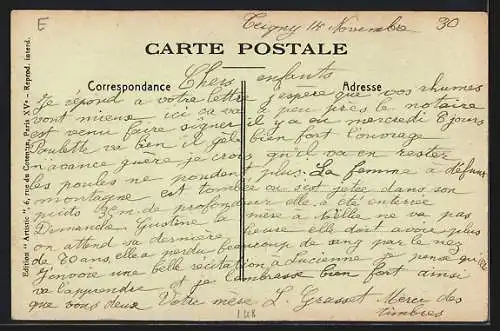 E
Teigny 14 Novembre 30
CARTE POSTALE
Correspondance
Adresse
Chers enfants
Je répond a votre lettre j'espere que vos rhumes
vont mieux ici ca va a peu près le notaire
est venu faire signer il y a eu mercredi 8 jours
Poulette va bien il gèle bien fort l'ouvrage
n'avance guère je crois qu'il va en rester
les poules ne pondent plus. La femme a defunt
montagne est tombée ou s'est jetée dans son
puits 3m de profondeur elle a été enterrée
Dimanche Gustine la mère a ne va pas
on attend sa dernière heure elle doit avoir plus
de 80 ans elle a perdu beaucoup de sang par le nez
Genovie une belle récitation a Lucienne je pense qu'elle
va l'apprendre et je l'embrasse bien fort ainsi
que vous deux Votre mère L. Grasset Merci des
timbres
148
Edition "Artistic", 6, rue du Cotentin, Paris XVe - Reprod. interd.